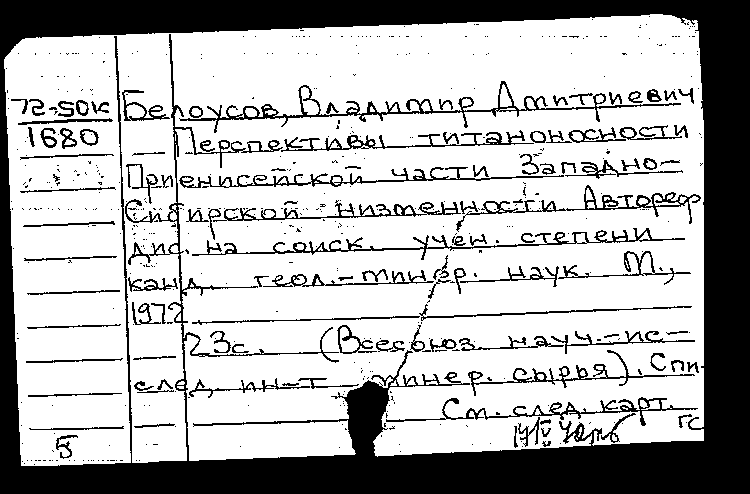 72-50к Белоусов, Владимир Дмитриевич
1680 Перспективы титаноносности
Приенисейской части Западно-
Сибирской низменности Автореф.
дис. на соиск. учен. степени
канд. геол.-минер. наук. М.,
1972.
23с. (Всесоюз. науч.-ис-
след. ин-т минер. сырья). Спи-
См. след. карт.
5 ГС